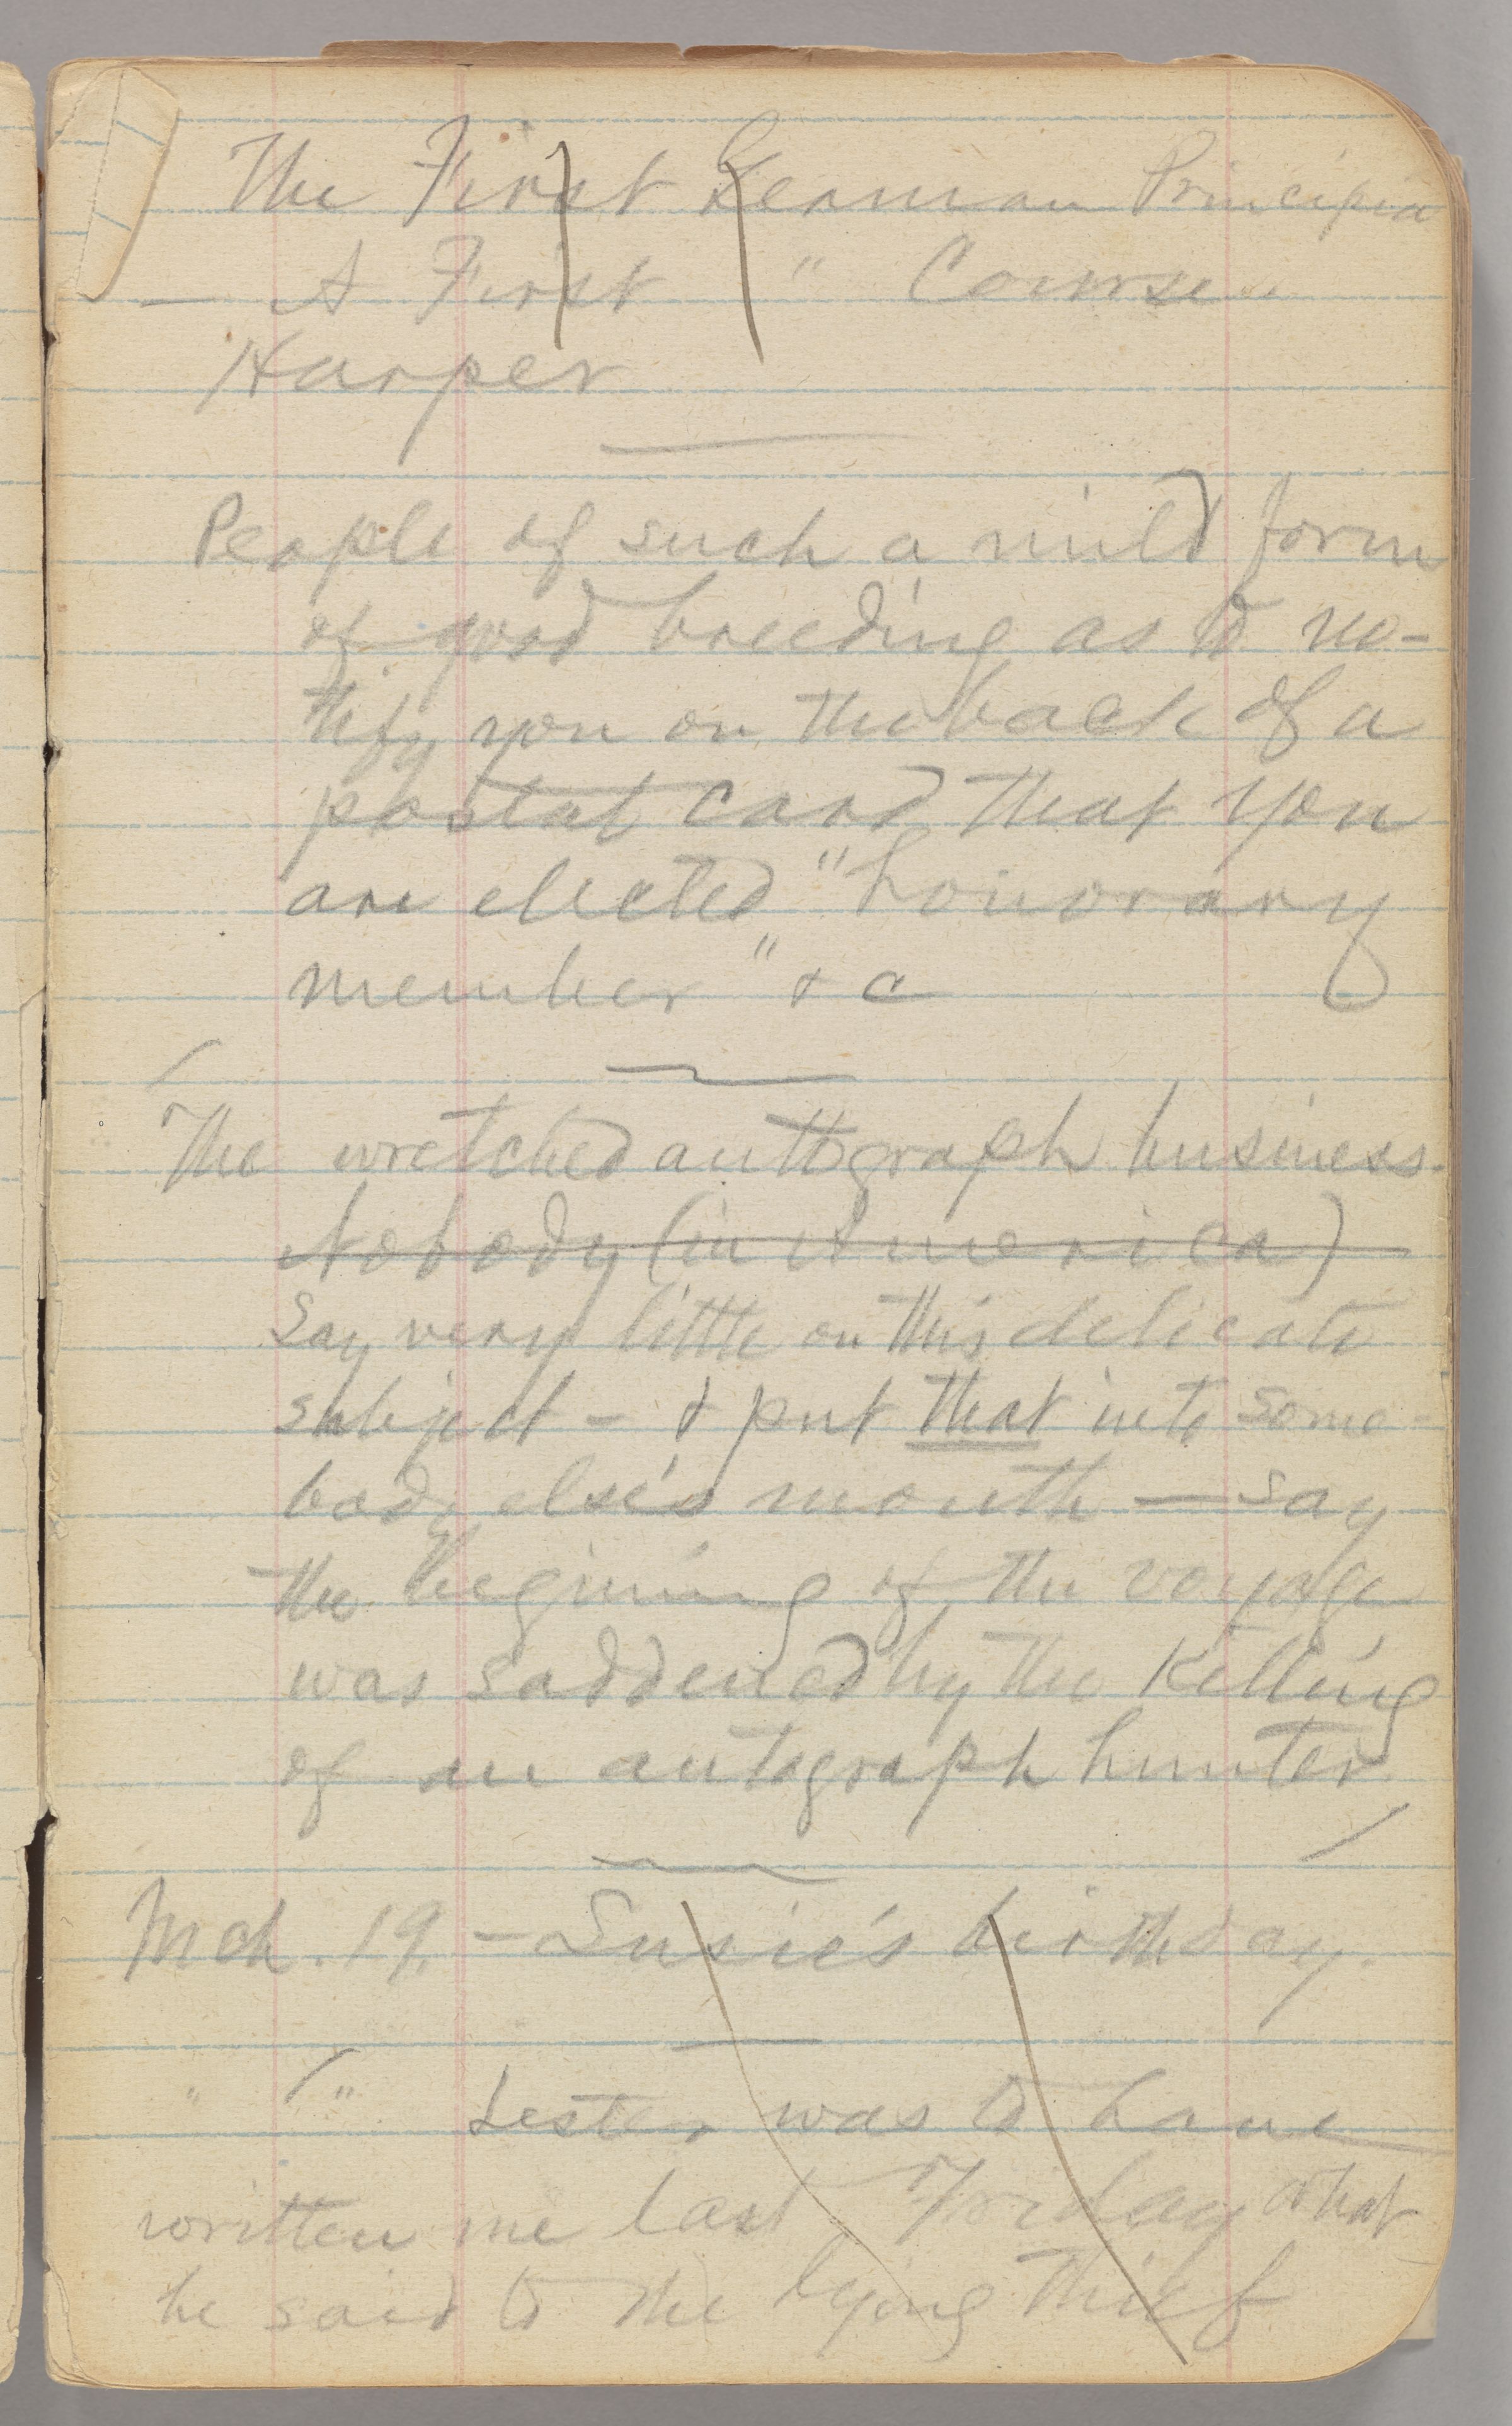 The First German Principia
— A First " Course.
Harper
People of such a mild form
of good breeding as to no-
tify you on the back of a
postal card that you
are elected "honorary
member" &c
The wretched autograph business.
Nobody (in America)
Say very little on this delicate
subject — & put that into some-
body else's mouth — say
the beginning of the voyage
was saddened by the killing
of an autograph hunter.
Mch. 19. — Susie's birthday.
" " Lester was to have
written me last Friday what
he said to the lying thief